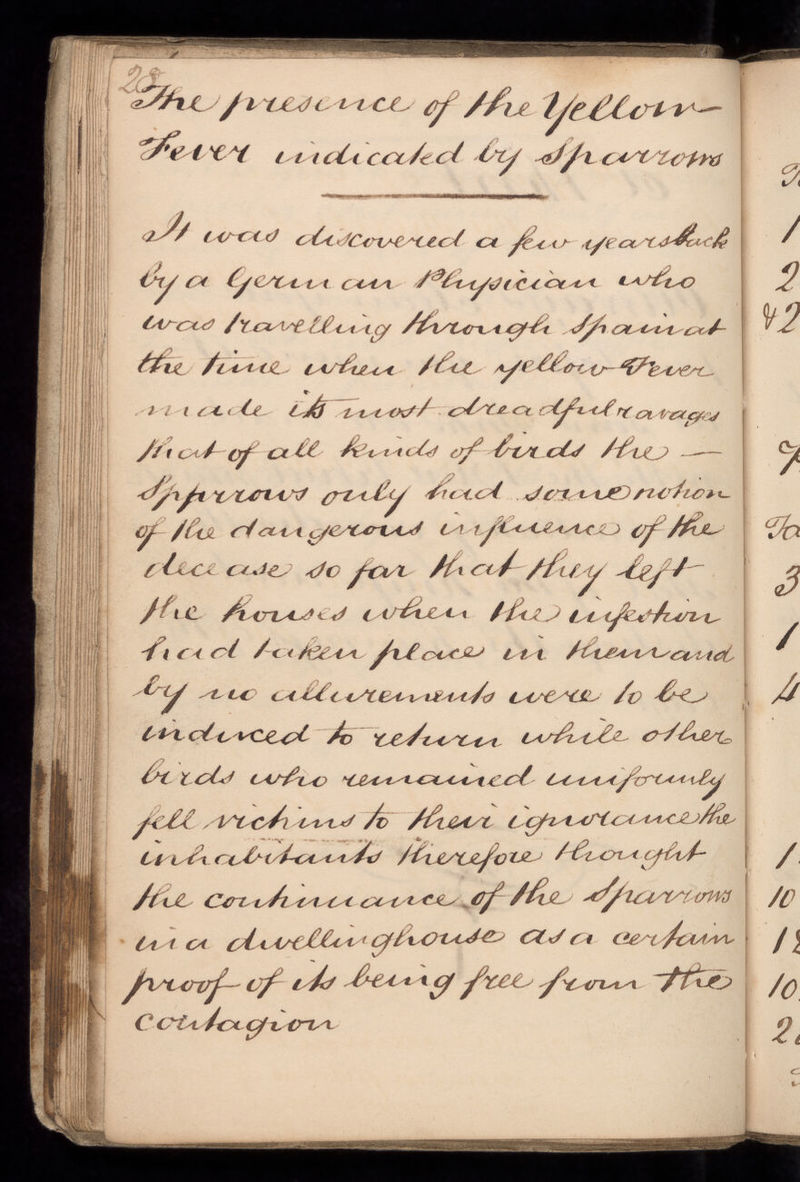 28
The presence of the Yellow
Fever indicated by Sparrows
It was discovered a few years back
by a German Physician who
was travelling through Spain at
the time when the yellow Fever
made its most dreadful ravages
that of all kinds of birds the —
Spprrows only had some notion
of the dangerous influence of the
decease so far that they left
the houses when the infestion
had taken place in them and
by no allurements were to be
induced to return while other
birds who remained uniformly
fell victims to their ignorance the
inhabitants therefore thought
the continuance of the Sparrows
in a dwellinghouse as a certain
proof of its being free from the
contagion
1
2
&2
3
1
4
1
10
10